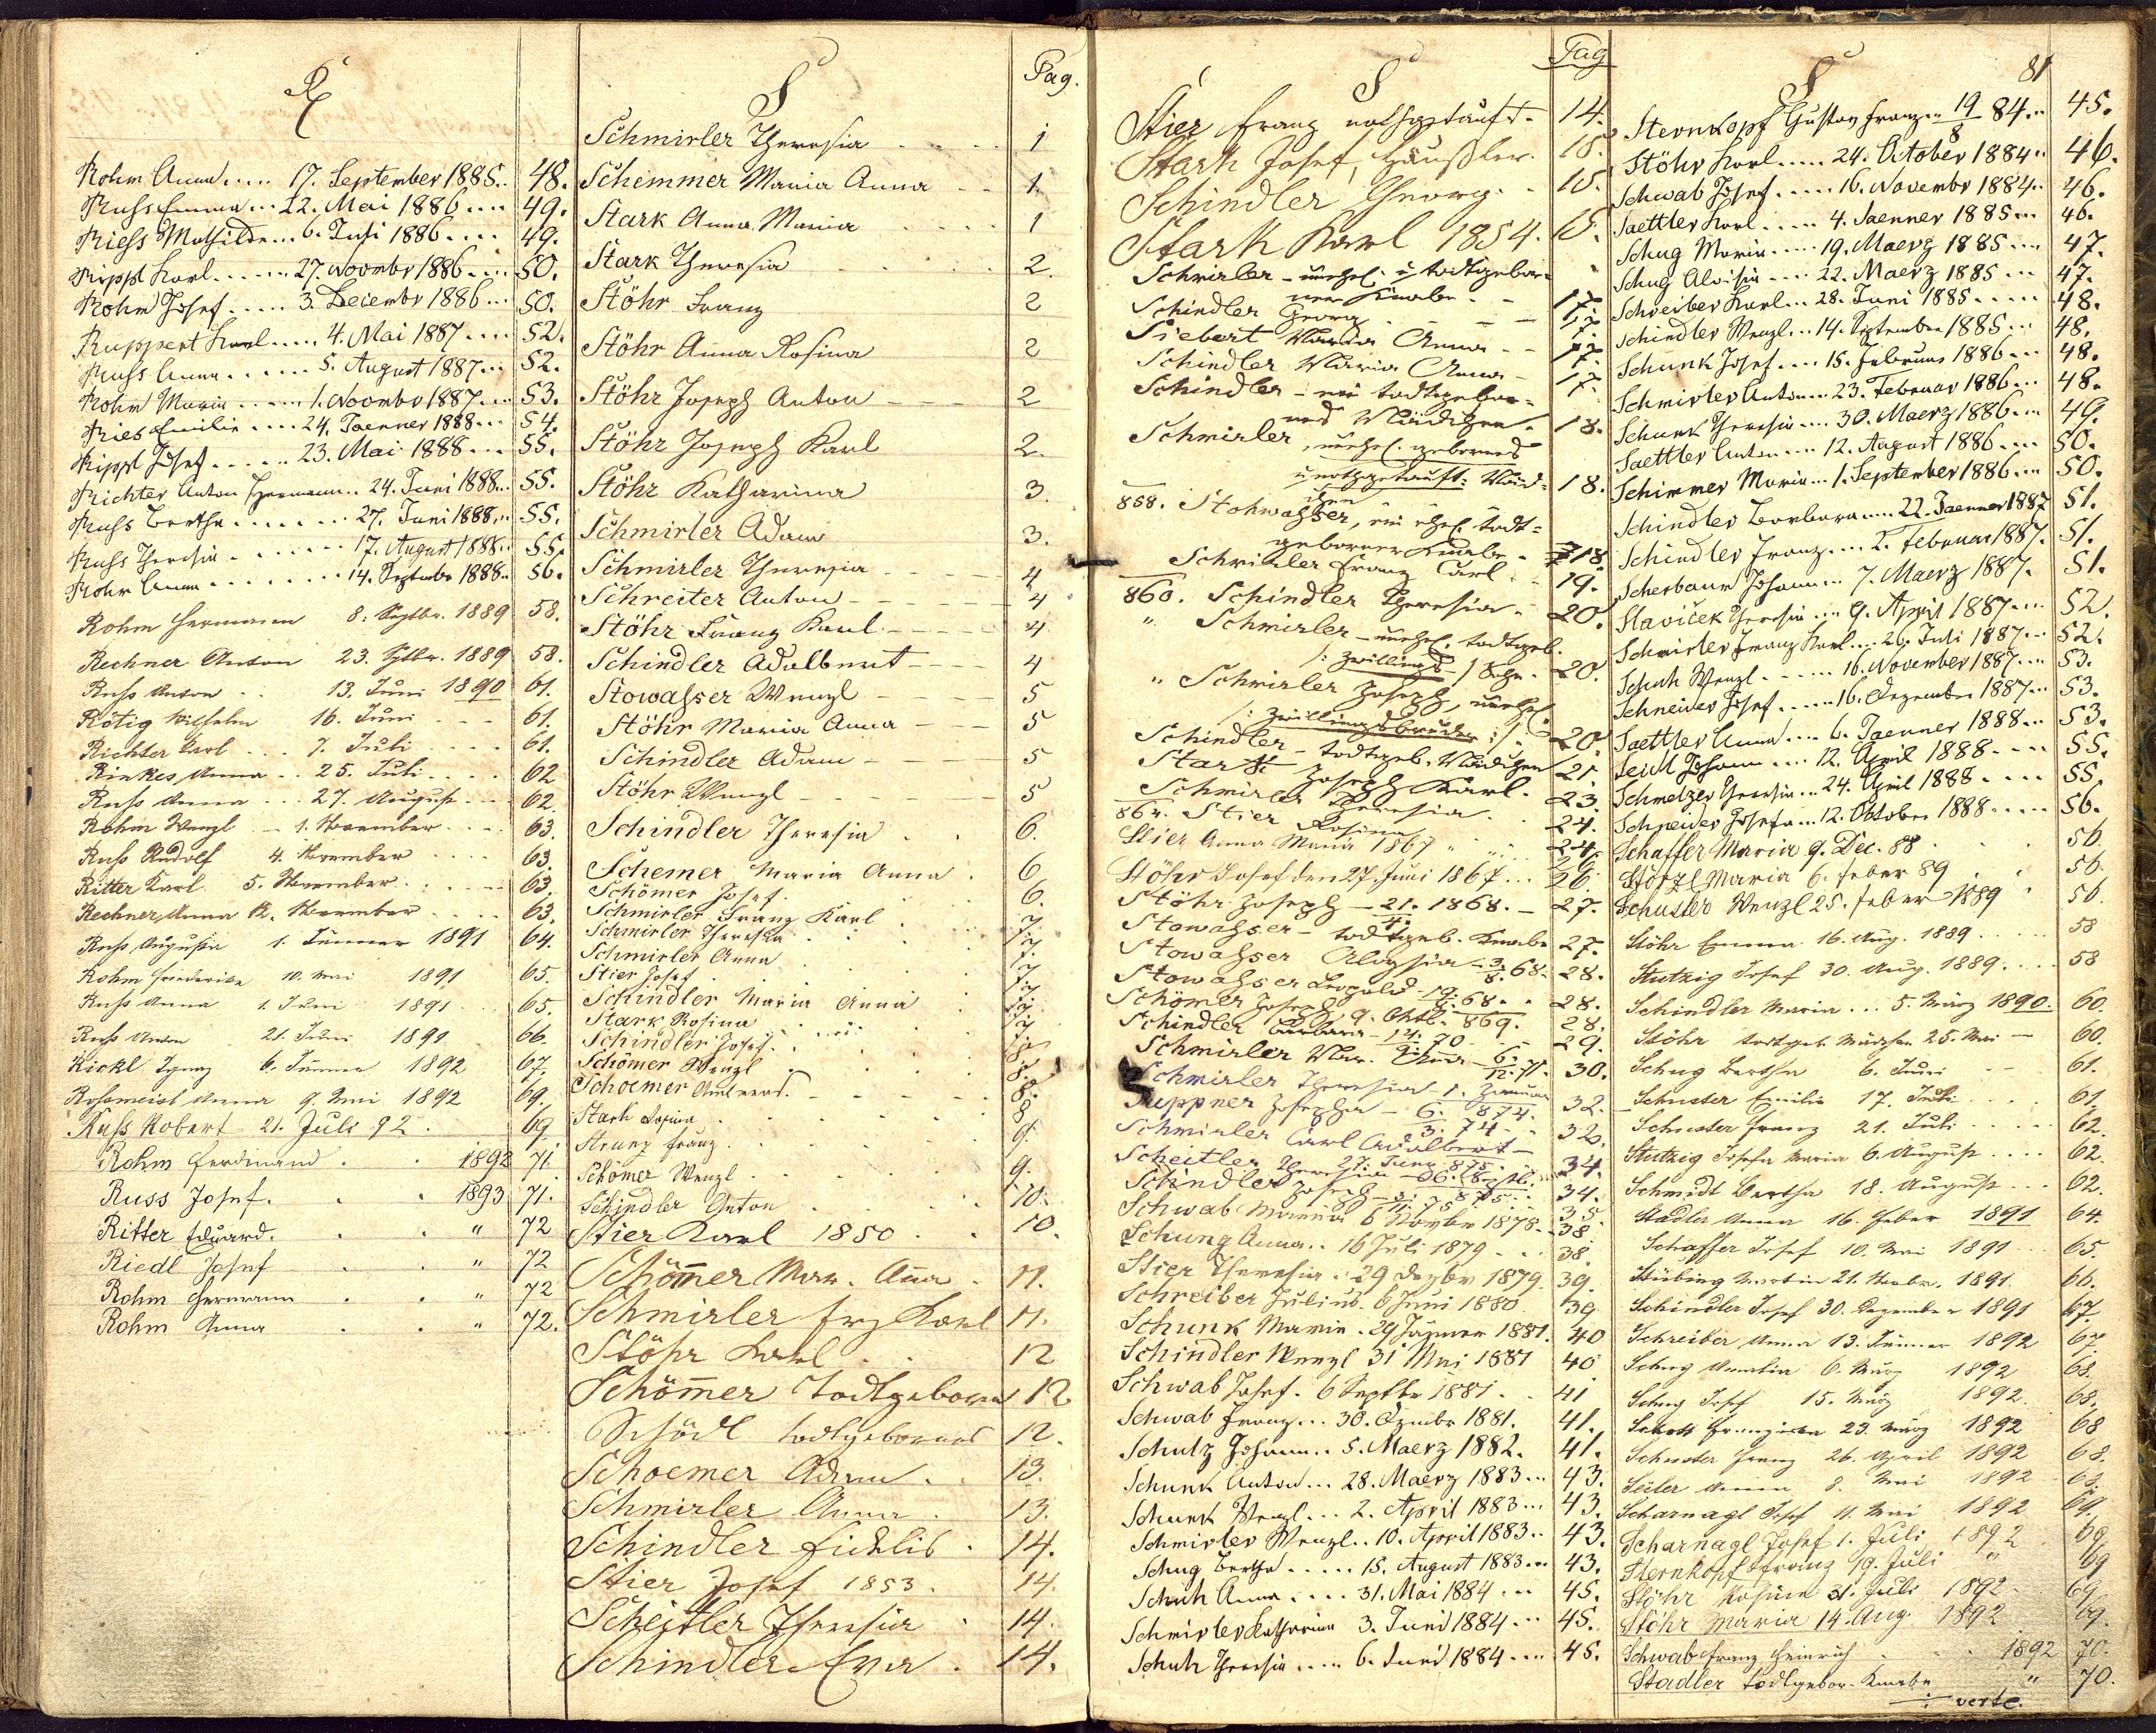 R
Rohm Anna..... 17. September 1885.. 48.
Russ Emma... 22. Mai 1886.... 49.
Riess Mathilde... 6. Juli 1886.... 49.
Rippl Karl...... 27. Novembr 1886.... 50.
Rohm Josef..... 3. Decembr 1886... 50.
Ruppert Karl..... 4. Mai 1887.... 52.
Russ Anna...... 5. August 1887... 52.
Rohm Maria..... 1. Novembr 1887... 53.
Ries Emilie.... 24. Jaenner 1888... 54.
Rippl Josef...... 23. Mai 1888... 55.
Richter Anton Hermann.. 24. Juni 1888... 55.
Russ Bertha....... 27. Juni 1888... 55.
Russ Theresia....... 17. August 1888.. 55.
Rohm Anna........ 14. Septembr 1888.. 56.
Rohm Hermann 8. Septbr. 1889 58.
Rechner Anton 23. Sptbr. 1889 58.
Russ Anton .. 13. Juni 1890 61.
Rötig Wilhelm 16. Juni --- 61.
Richter Karl ... 7. Juli .... 61.
Rinkes Anna .. 25. Juli .... 62
Russ Anna ... 27. August ... 62.
Rohm Wenzl - 1. November .... 63.
Russ Rudolf 4. November .... 63.
Ritter Karl 5. November .... 63.
Rechner Anna 12. November .... 63.
Russ Augusta 1. Jänner 1891 64.
Rohm Friederike 10. Mai 1891 65.
Russ Anna 1. Juni 1891 65.
Russ Anton 21. Juni 1891 66.
Rickl Ignaz 6. Jänner 1892 67.
Rossmeisl Anna 9. Mai 1892 69.
Russ Robert 21. Juli 92. 69
Rohm Ferdinand . . 1892 71.
Russ Josef. . . 1893 71.
Ritter Eduard. . . " 72
Riedl Josef . . " 72
Rohm Hermann . . " 72
Rohm Anna . . " 72.
S Pag.
Schmirler Theresia 1
Schemmer Maria Anna 1.
Stark Anna Maria 1
Stark Theresia 2.
Stöhr Franz 2
Stöhr Anna Rosina 2
Stöhr Joseph Anton 2
Stöhr Joseph Karl 2.
Stöhr Katharina 3.
Schmirler Adam 3.
Schmirler Theresia 4
Schreiter Anton 4
Stöhr Franz Karl 4
Schindler Adalbert 4
Stowasser Wenzl 5
Stöhr Maria Anna 5
Schindler Adam 5
Stöhr Wenzl 5
Schindler Theresia 6.
Schemer Maria Anna . 6
Schömer Josef. 6.
Schmirler Franz Karl 7
Schmirler Theresia 7
Schmirler Anna 7.
Stier Josef 7
Schindler Maria Anna 7
Stark Rosina 7.
Schindler Josef 7
Schömer Wenzl 8.
Schoemer 8.
Stark 8.
Strunz Franz 9.
Schömer Wenzl 9.
Schindler Anton 10.
Stier Karl 1850 . . 10.
Schömer Mar. Anna . 11.
Schmirler Frz Karl 11.
Stöhr Karl . . 12
Schömer todtgeboren 12
Schödl todtgebornes 12.
Schoemer Adam . . 13.
Schmirler Anna . 13.
Schindler Fidelis . 14.
Stier Josef 1853. 14.
Scheitler Theresia . 14.
Schindler Eva . 14.
S Pag
Stier Franz nothgetauft. 14.
Stark Josef, Häusler. 15.
Schindler Georg. . 15.
Stark Karl 1854. 15.
Schmirler - unehel. u todtgebor-
ner Knabe. - 17.
Schindler Georg 17.
Siebert Maria Anna - 17.
Schindler Maria Anna - 17.
Schindler - ein todtgebor-
nes Mädchen. 18.
Schmirler, unehel. gebornes
u nothgetauft: Mäd-
chen 18.
858. Stohwasser, ein ehel. todt-
geborner Knabe. 18.
Schmirler Franz Carl 19.
860. Schindler Theresia. 20.
" Schmirler - unehel. todtgeb.
/: Zwillings- / 20.
" Schmirler Joseph, unehel.
/: Zwillingsbruder :/ 20
Schindler - todtgeb. Mädchen 21
Stark Joseph Karl. 23.
Schmirler Theresia. 24.
864. Stier Rosina 24.
Stier Anna Maria 1867 26.
Stöhr Josef den 27. Juni 1867... 26.
Stöhr Joseph - 21. 1868. - 27.
Stowasser - todtgeb. Knabe 27.
Stowasser Aloysia 3. 68. 28.
Stowasser Leopold 68. 28.
Schömer Joseph 9. Oktb. 869. 28.
Schindler Barbara 14. 70 29.
Schmirler Mar. Anna 6. 12. 71. 30.
Schmirler Theresia 1. Jänner 874. 32.
Suppner Josepha - 6. 3. 74 32.
Schmirler Carl Adalbert - 27. Juni 875 34.
Scheitler Theresia 34.
Schindler Joseph 35.
Schwab Maria 6 Novbr 1878. 38
Schung Anna.. 16 Juli 1879 . . 38
Stier Theresia. 29 Dezbr 1879. 39.
Schreiber Julius. 6 Juni 1880. 39
Schunk Maria. 29 Jänner 1881. 40
Schindler Wenzl 31 Mai 1881 40
Schwab Josef. 6 Septbr 1881. . 41
Schwab Franz... 30. Dzembr 1881. 41.
Schulz Johann.. 5. Maerz 1882. 41.
Schunk Anton... 28. Maerz 1883... 43.
Schunk Wenzl... 2. April 1883... 43.
Schmirler Wenzl.. 10. April 1883.. 43.
Schug Bertha..... 15. August 1883... 43.
Schuh Anna.... 31. Mai 1884 ... 45.
Schmirler Katharina 3. Juni 1884... 45.
Schuh Theresia.... 6. Juni 1884.... 45.
S 81
Sternkopf Gustav Franz... 19/8 84... 45.
Stöhr Karl..... 24. October 1884.. 46.
Schwab Josef..... 16. Novembr 1884.. 46.
Saettler Karl..... 4. Jaenner 1885... 46.
Schug Maria.... 19. Maerz 1885.... 47.
Schug Aloisia.... 22. Maerz 1885... 47.
Schreiber Karl... 28. Juni 1885..... 48.
Schindler Wenzl... 14. September 1885... 48.
Schunk Josef.... 15. Februar 1886... 48.
Schmirler Anton.... 23. Februar 1886... 48.
Schunk Theresia.... 30. Maerz 1886... 49.
Saettler Anton..... 12. August 1886.... 50.
Schimmer Maria... 1. September 1886... 50.
Schindler Barbara.... 22. Jaenner 1887 51.
Schindler Franz.... 2. Februar 1887. 51.
Scherbaum Johann... 7. Maerz 1887. 51.
Slaviček Theresia... 9. April 1887.... 52.
Schmirler Franz Karl... 26. Juli 1887... 52.
Schuh Wenzl...... 16. November 1887... 53.
Schneider Josef.... 16. Dezember 1887... 53.
Saettler Anna.... 6. Jaenner 1888... 53.
Seidl Johann.... 12. April 1888.... 55.
Schmelzer Theresia... 24. April 1888.... 55.
Schneider Josefa... 12. Oktober 1888..... 56.
Schaffer Maria 9. Dec. 88 56.
Störzl Maria 6. Feber 89 . . 56.
Schuster Wenzl 25. Feber 1889 56.
Stöhr Emma 16. Aug. 1889..... 58
Stutzig Josef 30. Aug. 1889.... 58
Schindler Maria... 5. März 1890. 60.
Stöhr todtgeb. Mädchen 25. Mai - 60.
Schug Bertha 6. Juni -- 61.
Schuster Emilie 17. Juli .... 61.
Schuster Franz 21. Juli ..... 62.
Stutzig Josefa Maria 6. August .... 62.
Schmidt Bertha 18. August ... 62.
Stadler Anna 16. Feber 1891 64.
Schaffer Josef 10. Mai 1891 ... 65.
Stübing Martin 21. Novbr. 1891. 66.
Schindler Josef 30. Dezember 1891 67.
Schreiber Anna 13. Jänner 1892 67.
Schug Amalia 6. März 1892 68.
Schug Josef 15. März 1892. 68.
Franziska 23. März 1892 68
Schuster Franz 26. April 1892 68.
8. Mai 1892 68.
Scharnagl Josef 11. Mai 1892 69.
Scharnagl Josef 1. Juli 1892 69
Sternkopf Franz 19. Juli " 69
Stöhr Rosina 31. Juli 1892 69.
Stöhr Maria 14. Aug. 1892 69.
Schwab Franz Heinrich . . 1892 70.
Stadler todtgebor. Knabe " 70.
verte.